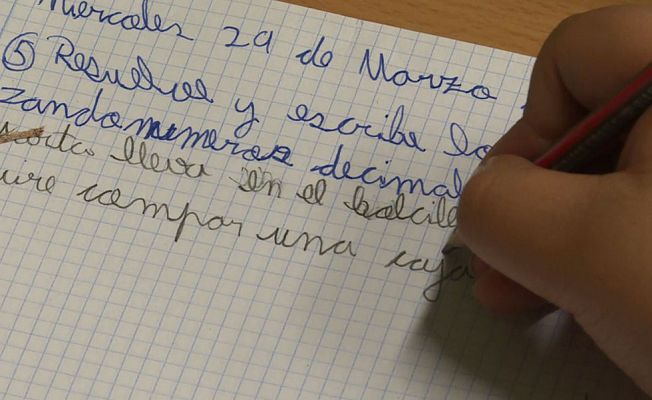 Miercoles 29 de Marzo
⑤ Resuelve y escribe lo
zando numeros decimal
lleva en el bolcill
uire compar una caja